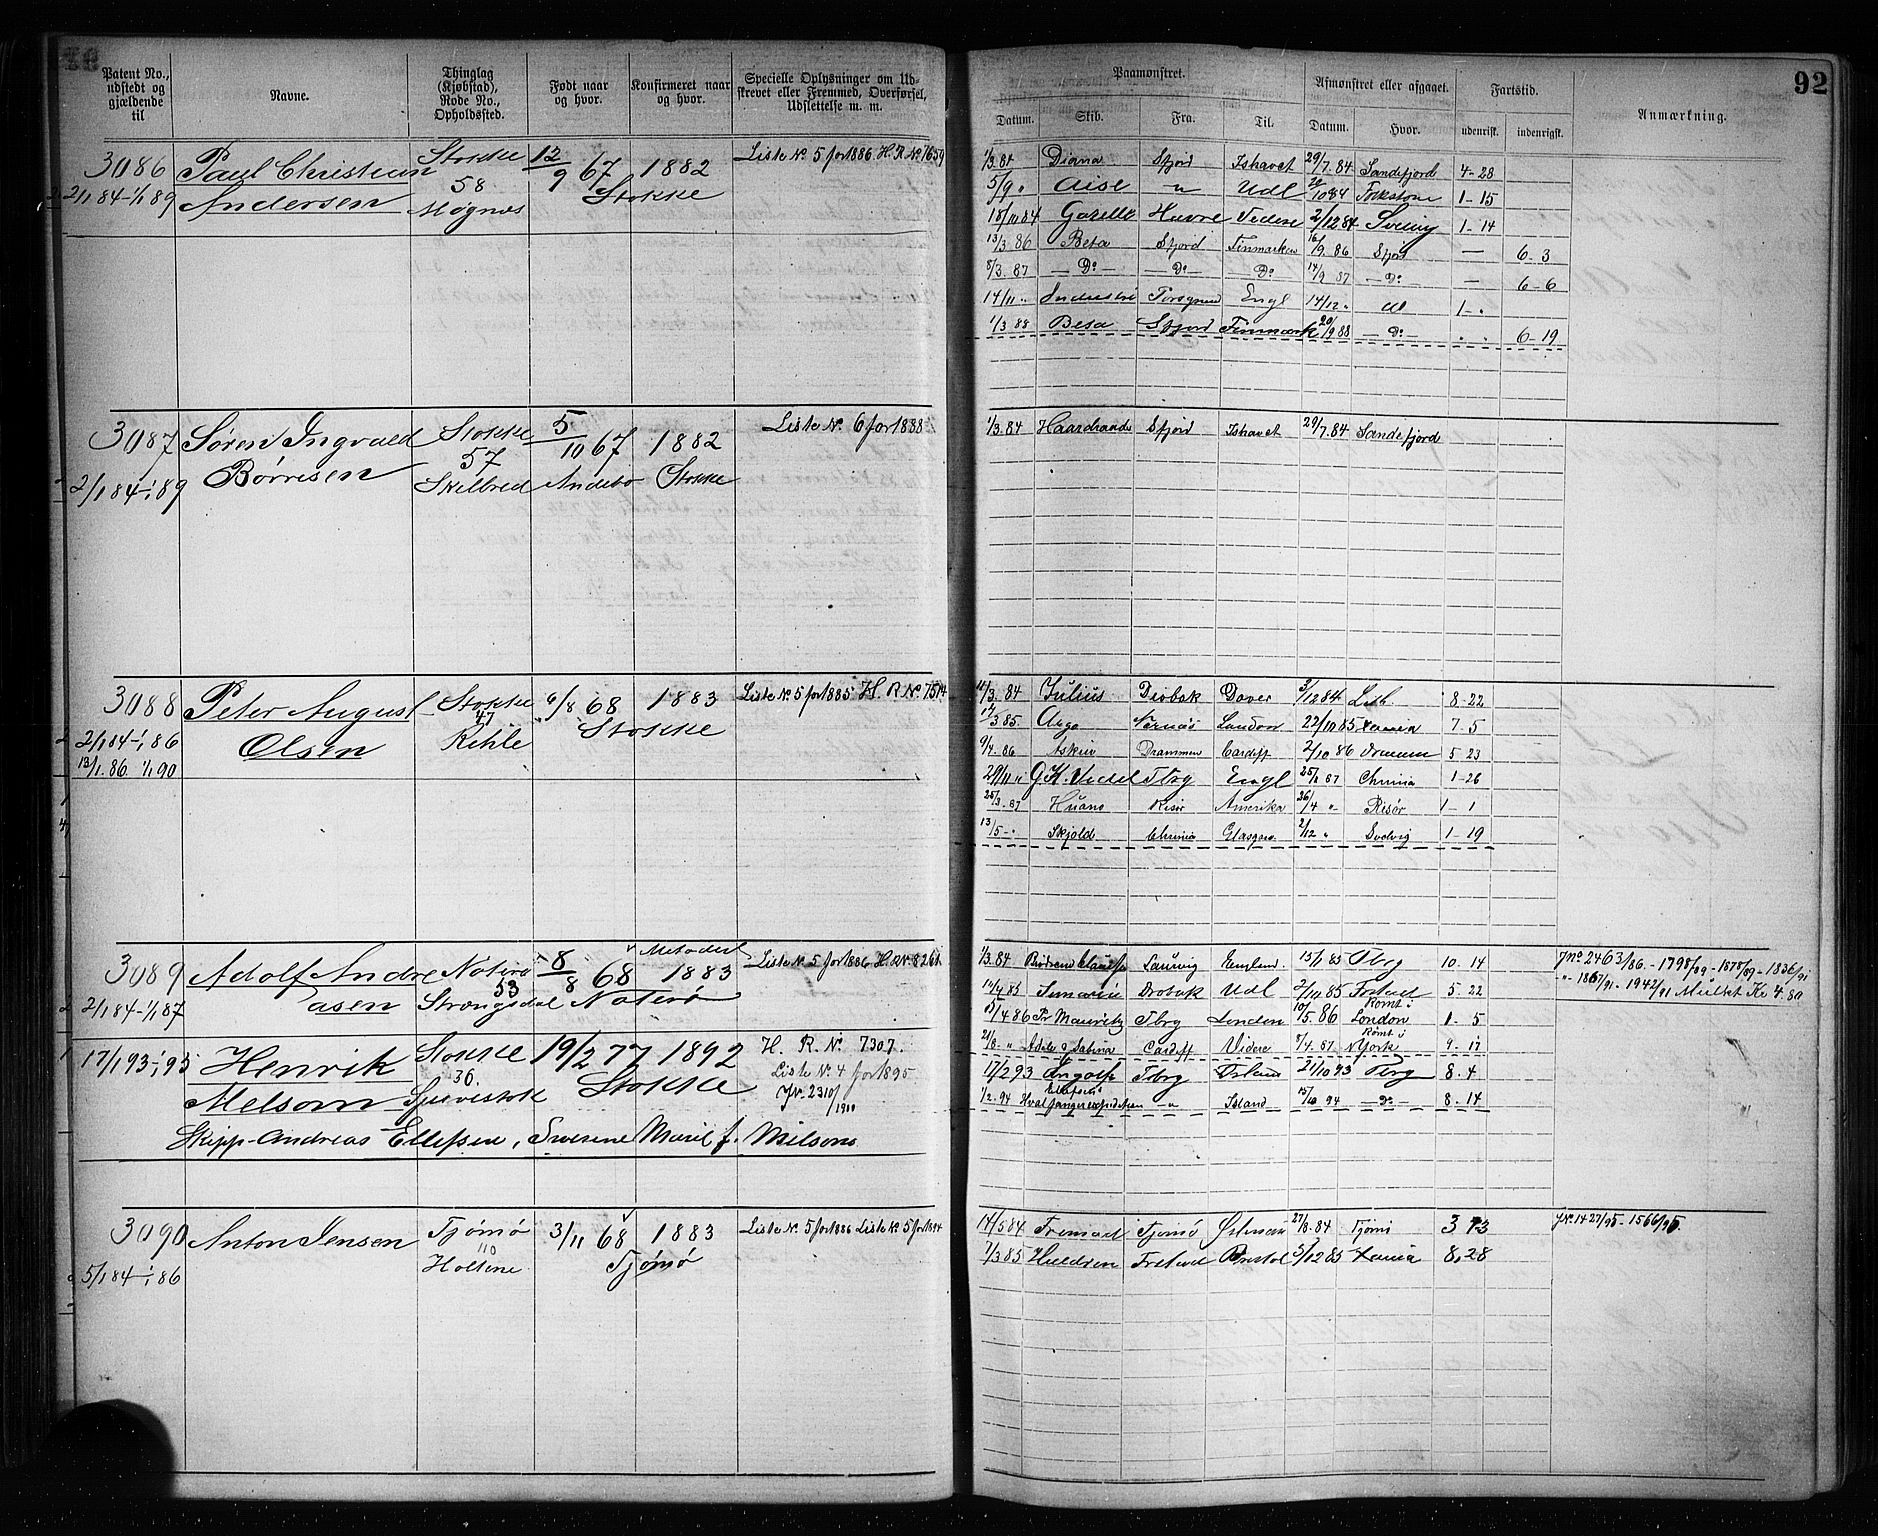 92
Patent No., udstedt og gjældende til
Navne.
Thinglag (Kjøbstad), Rode No., Opholdssted.
Født naar og hvor.
Konfirmeret naar og hvor.
Specielle Oplysninger om Udskrevet eller Fremmed, Overførsel, Udslettelse m. m.
Paamønstret.
Afmønstret eller afgaaet.
Fartstid.
Anmærkning.
Datum. Skib. Fra. Til. Datum. Hvor. udenrisk. indenrigsk.
3086 Paul Christian Stokke 12/9 67 1882 Liste No 5 for 1886 H. R. No 7659
2/1 84-1/1 89 Andersen 58 Stokke
Møgnæs
1/3 84 Diana Sfjord Ishavet 29/7 84 Sandefjord 4-28
5/9 " Aise " Udl 1-15
18/10 84 Gazelle Havre Videre 2/12 84 1-14
13/3 86 Beta Sfjord Finmarken 16/9 86 Sfjord — 6-3
8/3 87 — Do — — Do — — Do 14/9 87 — Do — — 6-6
14/11 " Engl 14/12 " 1- "
1/3 88 Beta Sfjord Finmark 20/9 88 — Do — " " 6-19
3087 Søren Ingvald Stokke 5/10 67 1882 Liste No 6 for 1888
2/1 84-1/1 89 Børresen 57 Andebo Stokke
Skelbred
1/3 84 Haardraade Sfjord Ishavet 29/7 84 Sandefjord
3088 Peter August Stokke 6/8 68 1883 Liste No 5 for 1885 H. R. No 7514
2/1 84-1/1 86 Olsen 47 Stokke
13/1 86 1/1 90 Rehle
11/3 84 Julius Drøbak Dover 3/12 84 8-22
85 Argo London 22/10 85 Xania 7-5
9/4 86 Drammen Cardiff 2/10 86 5-23
29/11 " G. K. Vedel Tbrg Engl 87 Chrnia 1-26
25/3 87 Huano Risør Amerika 26/4 " Risør 1-1
13/5 " Skjold Chrnia 2/12 " Svelvig 1-19
3089 Adolf Andre Nøterø 8/8 68 Metodist 1883 Liste No 5 for 1886 H. R. No 8261
2/1 84-1/1 87 asen 53 Nøterø
Strængsdal
1/3 84 Laurvig 13/1 85 Tbrg 10-14 J No 2463/86 - 1798/89 - 1878/89 - 1836/91
14/4 85 Drøbak Udl 2/10 85 5-22 " 1867/91 - 1942/91 Mulkt Kr 4.80
4 86 Pr Mauritz Tbrg London 86 Rømt i London 1-5
Adele & Sabina Cardiff Videre 87 Rømt i N York 9-17
17/1 93-1/1 95 Henrik Stokke 19/2 77 1892 H. R. No 7307.
Melsom 36. Stokke Liste No 4 for 1895
J No 2310/1900
Skipp. Andreas Ellefsen, Sversne Maril f. Milsom
17/2 93 Tbrg Island 21/10 93 Tbrg 8-4
1/2 94 Hvalfangerexpedition " Island 94 — Do — 8-14
3090 Anton Jensen Tjømø 3/11 68 1883 Liste No 5 for 1886 Liste No 5 for 1894
5/1 84-1/1 86 110 Tjømø
Holtene
14/5 84 Fremad Tjømø 27/8 84 Tjømø 3 13 J No 1427/95 - 1566/95
7/3 85 Huldren Fr.stad Bristol 5/12 85 Xania 8.28